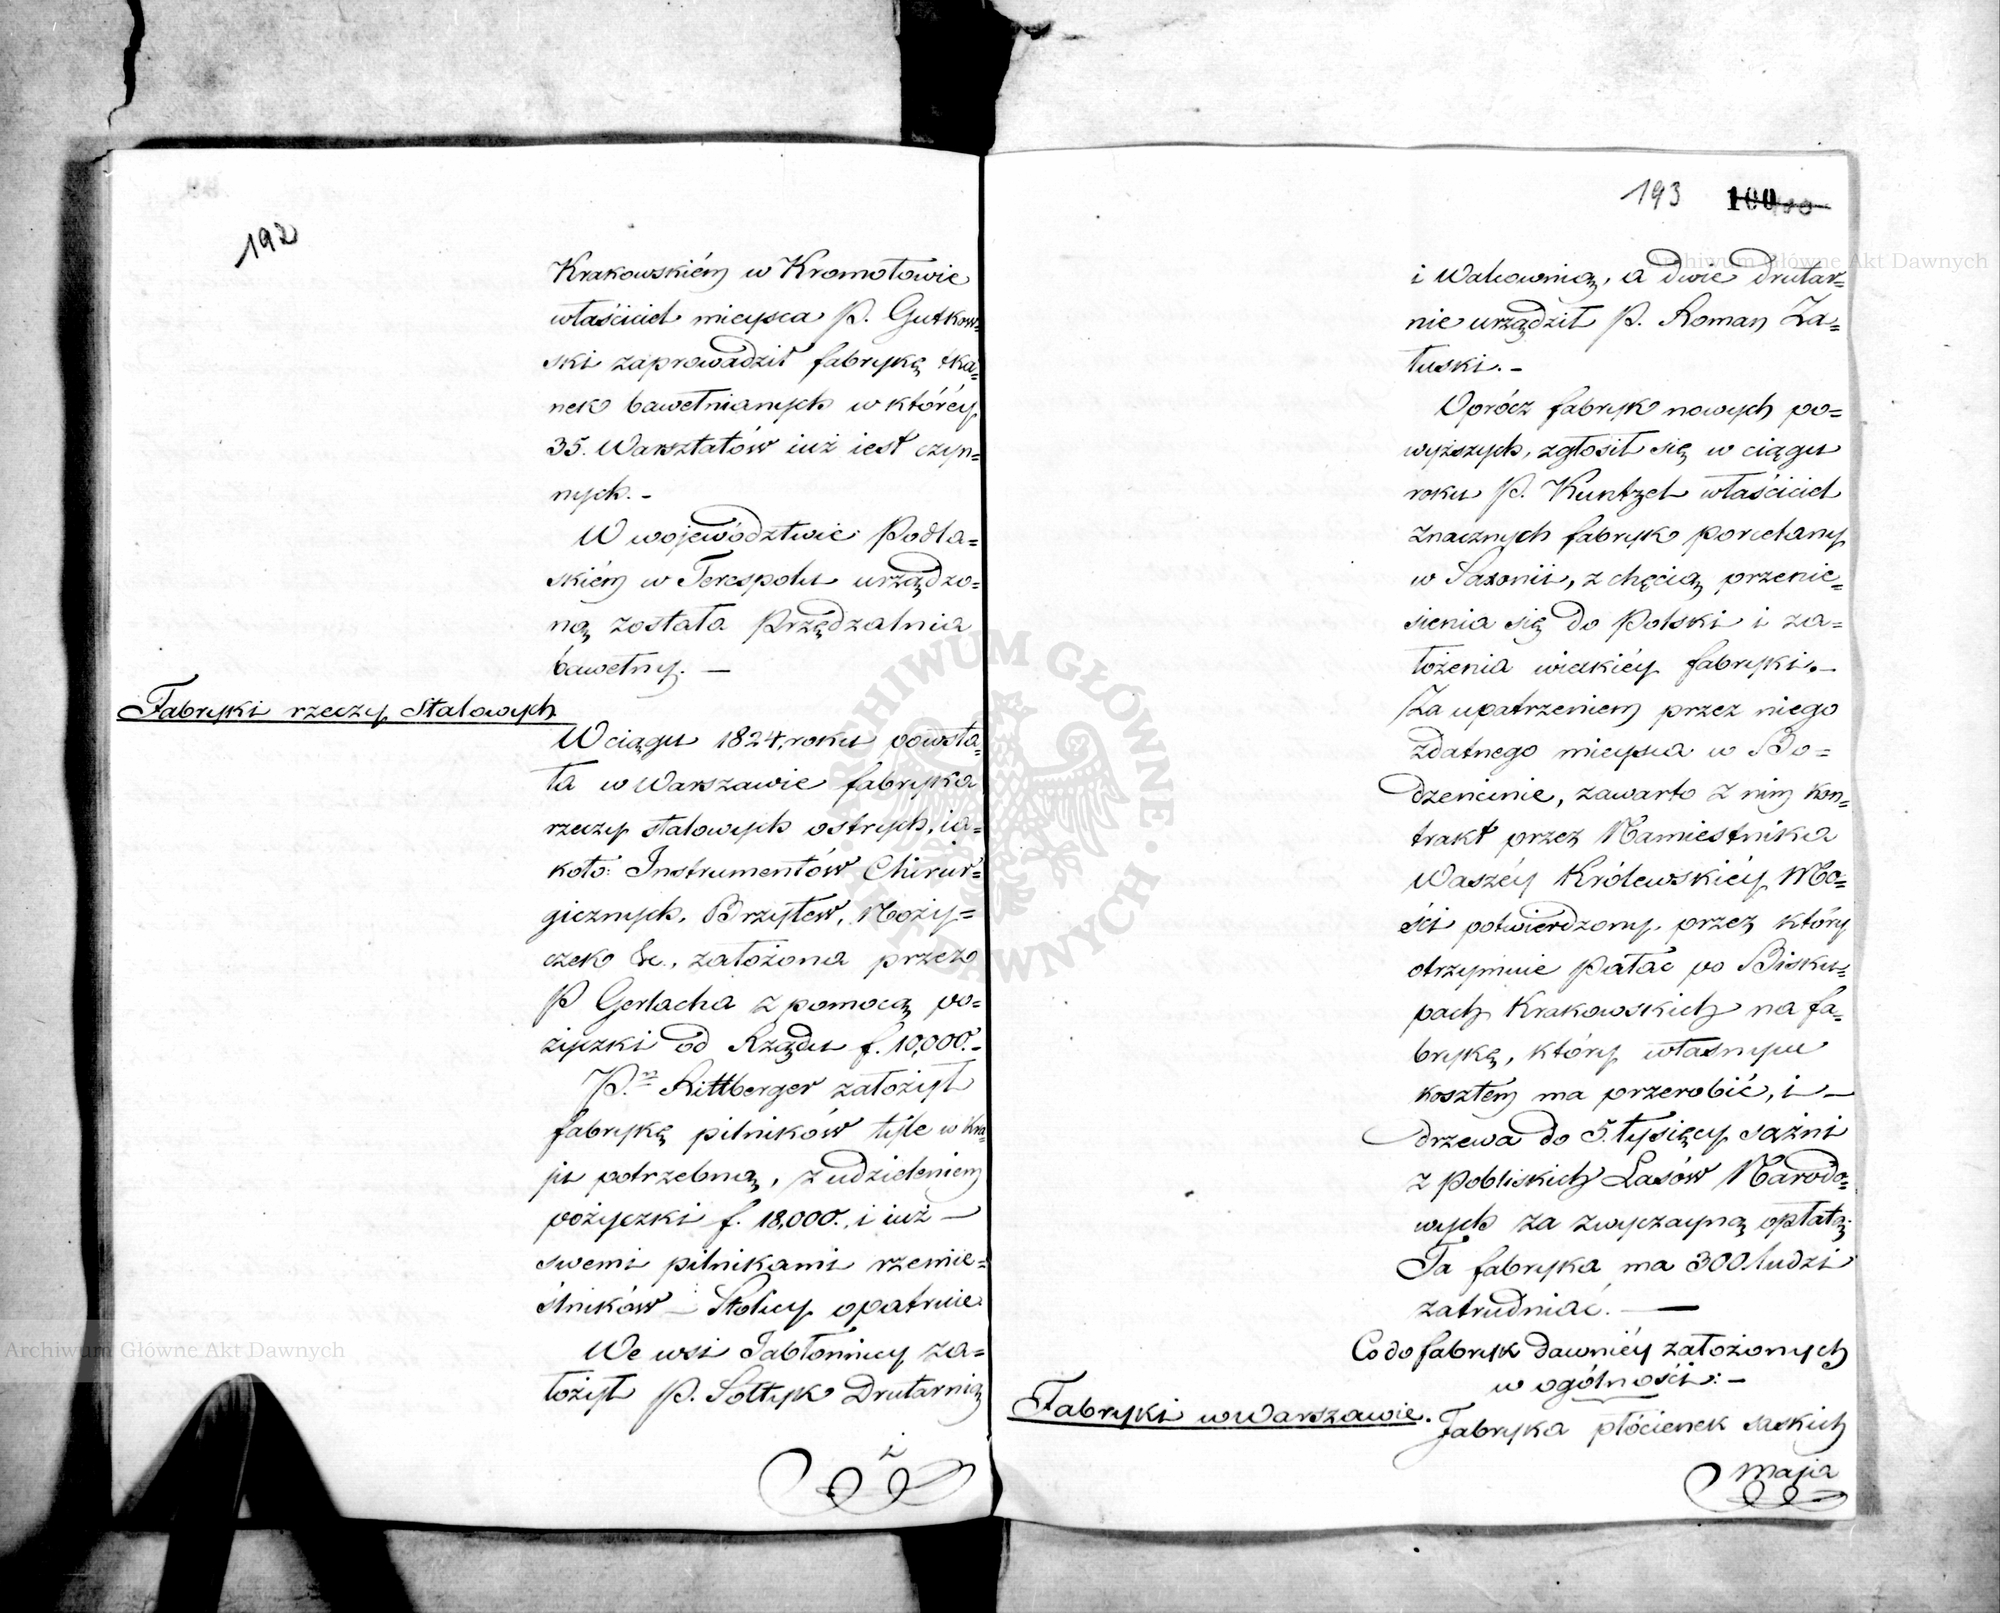 192
Krakowskiém w Kromołowie
właściciel mieysca P. Gutkow=
ski zaprowadził fabrykę tka=
nek bawełnianych w któréy
35. Warsztatów iuż iest czyn=
nych. -
W województwie Podla=
skiém w Terespolu urządzo=
ną została Przędzalnia
bawełny. —
Fabryki rzeczy Stalowych
W ciągu 1824. roku powsta=
ła w Warszawie fabryka
rzeczy stalowych ostrych, ia=
koto: Instrumentów Chirur=
gicznych, Brzytew, Noży=
czek &c., założona przez
P Gerlacha z pomocą po=
życzki od Rządu f. 10,000.-
P. Rittberger założył
fabrykę pilników tyle w Kra=
ju potrzebną, z udzieleniem
pożyczki f. 18,000., i iuż —
swemi pilnikami rzemie=
ślników — Stolicy opatruie
We wsi Jabłonnicy za=
łożył P. Sołtyk Drutarnią
i
193 100
i Walcownią, a dwie drutar=
nie urządził P. Roman Za=
łuski. -
Oprócz fabryk nowych po=
wyższych, zgłosił się w ciągu
roku P. Kuntzel właściciel
znacznych fabryk porcelany
w Saxonii, z chęcią przenie=
sienia się do Polski i za=
łożenia wielkiéy fabryki. —
Za upatrzeniem przez niego
zdatnego mieysca w Bo=
dzencinie, zawarto z nim kon=
trakt przez Namiestnika
Waszéy Królewskiéy Mo=
ści potwierdzony, przez który
otrzymuie Pałac po Bisku=
pach Krakowskich na fa=
brykę, który własnym
kosztem ma przerobić, i —
drzewa do 5. tysięcy sążni
z pobliskich Lasów Narodo=
wych za zwyczayną opłatą.
Ta fabryka ma 300. ludzi
zatrudniać. —
Co do fabryk dawniéy założonych
w ogólności: -
Fabryki w Warszawie.
Fabryka płócienek saskich
maja
Archiwum Główne Akt Dawnych
Archiwum Główne Akt Dawnych
ARCHIWUM GŁÓWNE AKT DAWNYCH